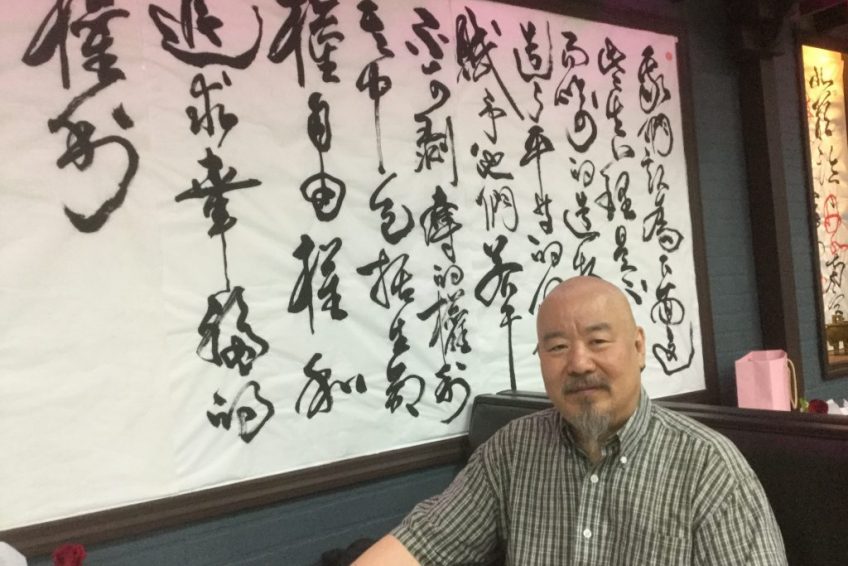 我們認為下面这
些真理是不
而喻的造物
造了平等的
賦予他們若干
不可剥奪的權利
其中包括生命
權自由權和
追求幸福的
權利